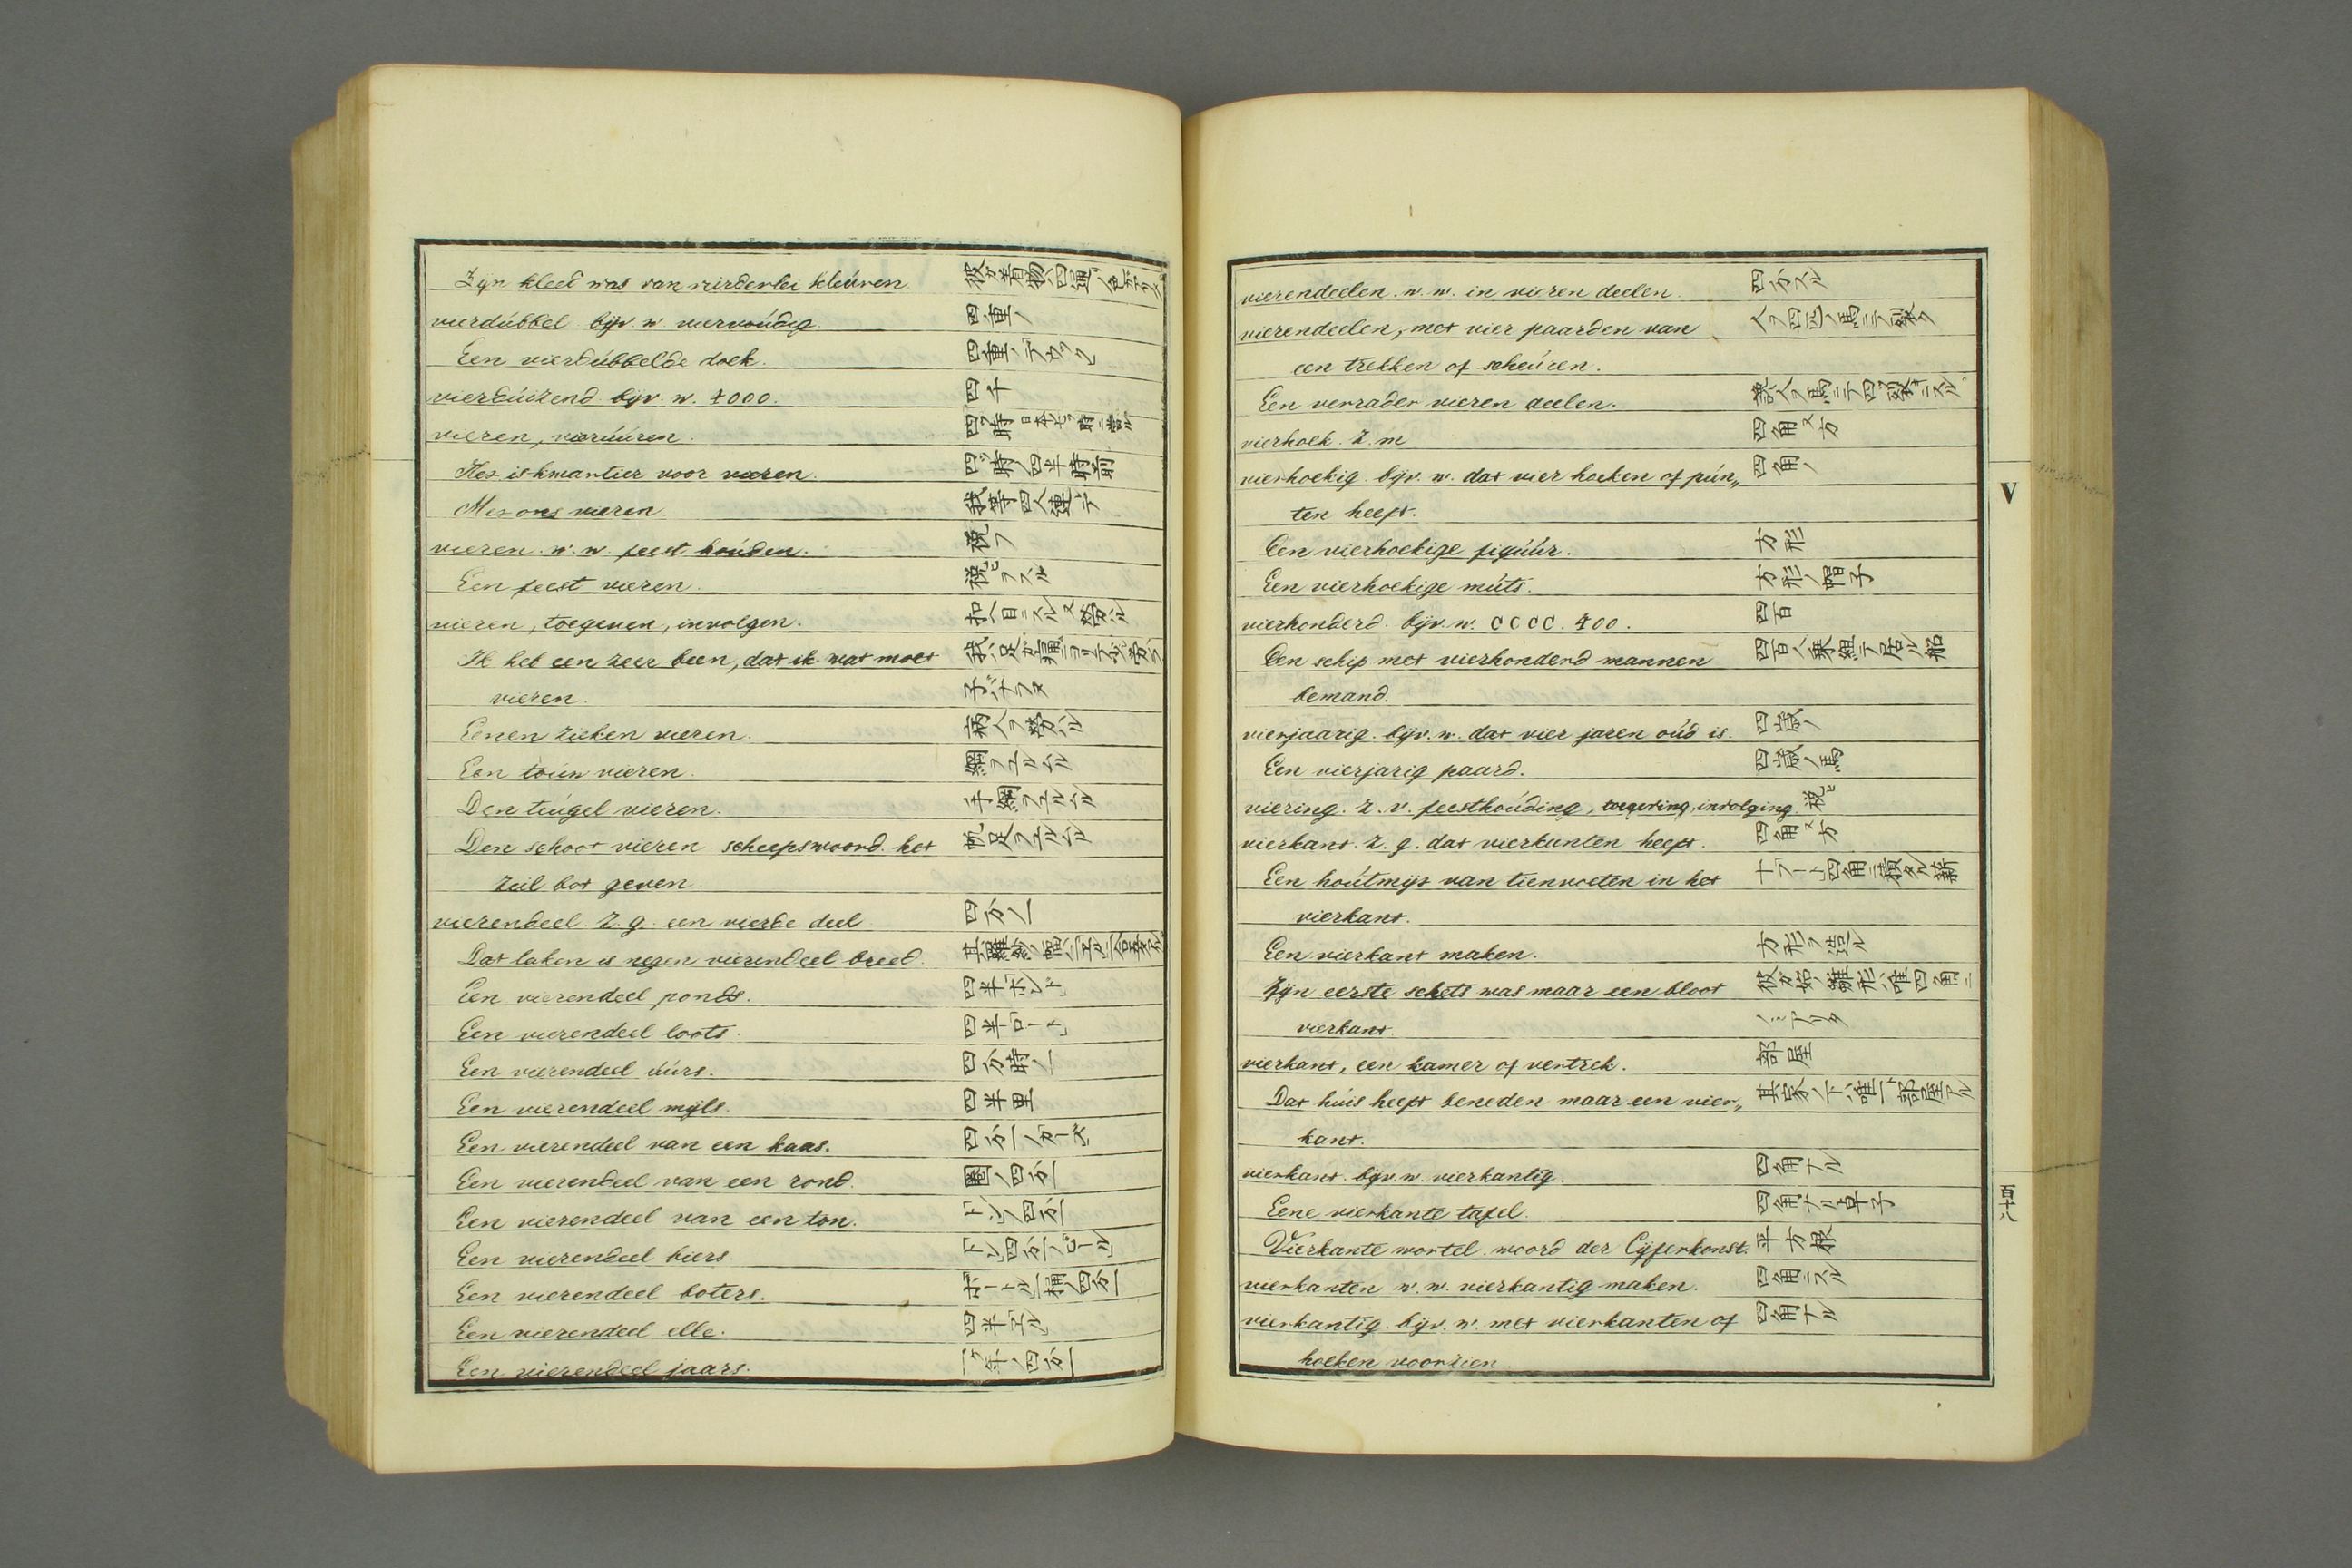 Zyn kleed was van vierderlei kleúren 彼ガ着物ハ四通ノ色デアリタ
vierdúbbel bijv. w. viervoúdig. 四重ノ
Een vierdúbbelde doek. 四重ノ
vierdúizend bijv. w. 4000. 四千
vieren, vierúúren. 四ツ時
Het is kwartier voor vieren. 四ツ時ノ四半時前
Met ons vieren. 我等四人連レテ
vieren. w. w. feest hoúden. 祝フ
Een feest vieren. 祝ヒヲスル
vieren, toegeven, involgen.
Ik heb een zeer been, dat ik wat moet
vieren. 子バナラヌ
Eenen zieken vieren. 病人ヲ労ハル
Een toún vieren. 綱ヲユルムル
Den teúgel vieren. 手綱ヲユルムル
Den schoot vieren scheepswoord. het 帆足ヲユルムル
zeil bot geven
vierendeel. z. g. een vierde deel 四分ノ一
Dat laken is negen vierendeel breed.
Een vierendeel ponds. 四半ポンド
Een vierendeel loots. 四半ロート
Een vierendeel úúrs. 四分時ノ一
Een vierendeel myls. 四半里
Een vierendeel van een kaas. 四分一ノカース
Een vierendeel van een rond. 圏ノ四分一
Een vierendeel van een ton. トンノ四分一
Een vierendeel biers. トン四分一ノビール
Een vierendeel boters. ボートル一桶ノ四分一
Een vierendeel elle. 四半エル
Een vierendeel jaars. 一ケ年ノ四分一
vierendeelen. w. w. in vieren deelen. 四分スル
vierendeelen, met vier paarden van 人ヲ四匹ノ馬ニテ裂ク
een trekken of scheúren.
Een verrader vieren deelen.
vierhoek. z. m 四角又方
vierhoekig. bijv. w. dat vier hoeken of pún„ 四角ノ
ten heeft.
Een vierhoekige figúúr. 方形
Een vierhoekige múts. 方形ノ帽子
vierhonderd. bijv. w. CCCC. 400. 四百
Een schip met vierhonderd mannen 四百人乗組テ居ル船
bemand.
vierjaarig. bijv. w. dat vier jaren oúd is. 四歳ノ
Een vierjarig paard. 四歳ノ馬
viering. z. v. feesthoúding, toegeving, involging. 祝ヒ
vierkant. z. g. dat vierkanten heeft. 四角又方
Een hoútmijt van tienvoeten in het 十フート四角ニ積タル薪
vierkant.
Een vierkant maken. 方形ヲ造ル
Zijn eerste schets was maar een bloot 彼ガ始ノ雛形ハ唯四角ニ
vierkant. ノミアリタ
vierkant, een kamer of vertrek. 部屋
Dat húis heeft beneden maar een vier„ 其家ノ下ハ唯一ト部屋アル
kant.
vierkant. bijv. w. vierkantig. 四角ナル
Eene vierkante tafel. 四角ナル卓子
Vierkante wortel. woord der Cijferkonst. 平方根
vierkanten w. w. vierkantig maken. 四角ニスル
vierkantig. bijv. w. met vierkanten of 四角ナル
hoeken voorzien.
V
百十八